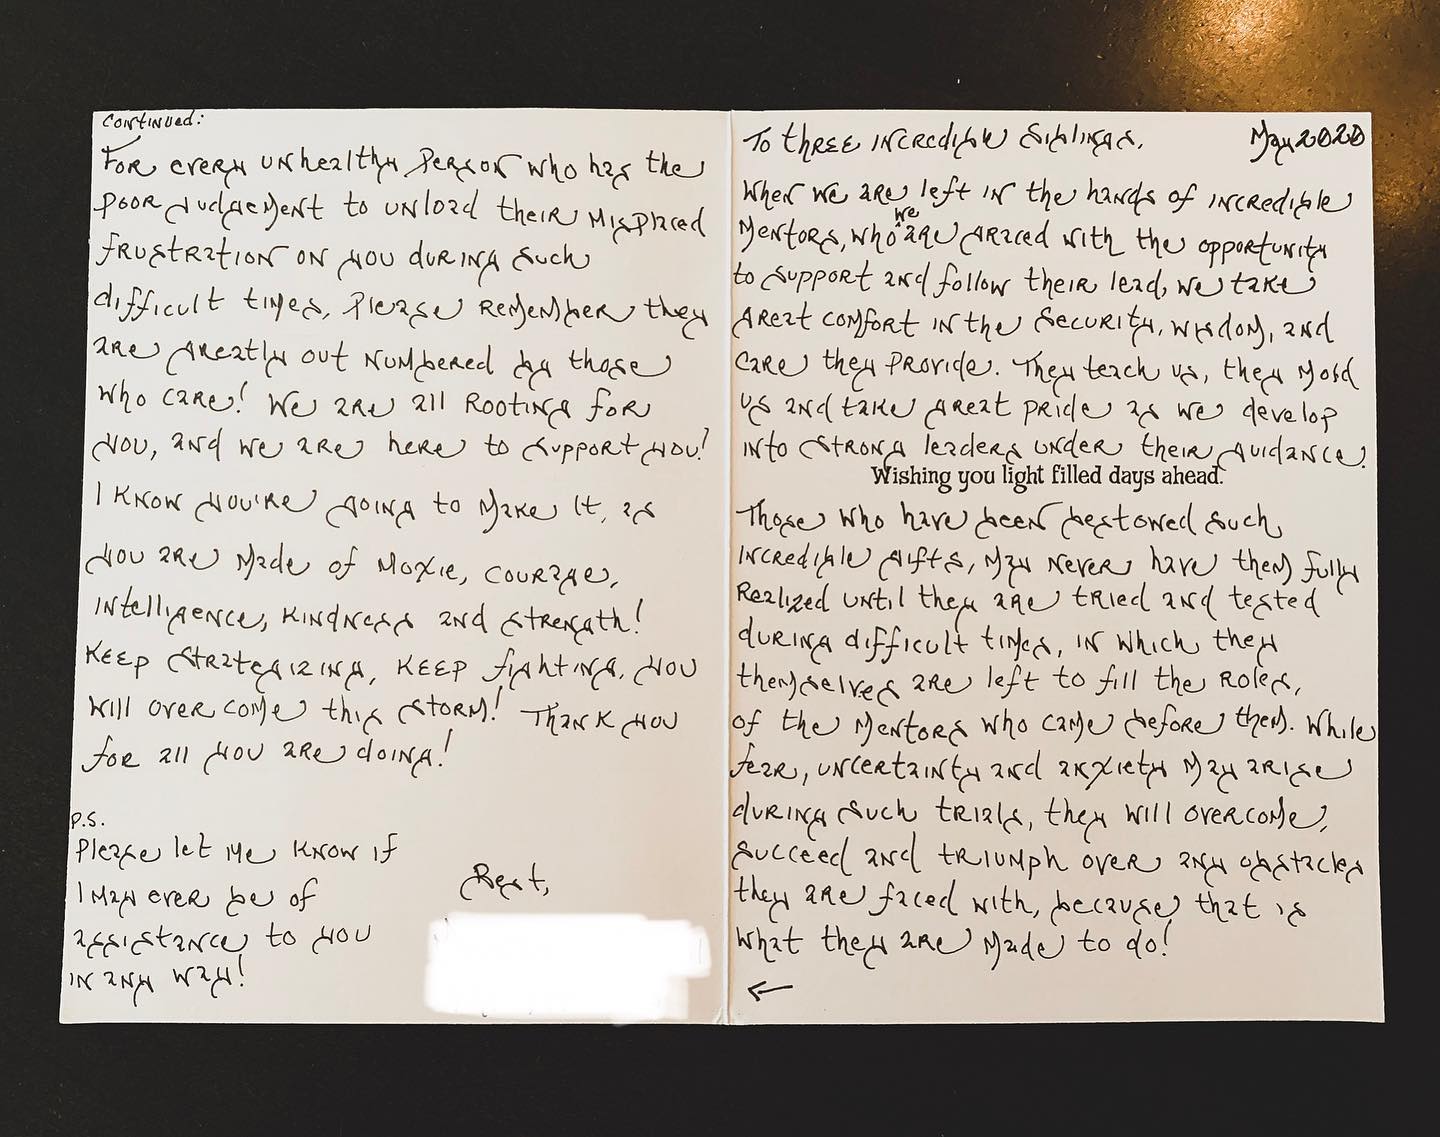 To three incredible Siblings,
May 2020
When we are left in the hands of incredible
we
Mentors, who are graced with the opportunity
to support and follow their lead, we take
great comfort in the security, wisdom, and
care they provide. They teach us, they mold
us and take great pride as we develop
into strong leaders under their guidance.
Wishing you light filled days ahead.
Those who have been bestowed such
incredible gifts, may never have them fully
Realized until they are tried and tested
during difficult times, in which they
themselves are left to fill the Roles,
of the Mentors who came before them. While
fear, uncertainty and anxiety may arise
during such trials, they will overcome,
succeed and triumph over any obstacles
they are faced with, because that is
what they are made to do!
←
Continued:
For every unhealthy person who has the
poor judgement to unload their misplaced
frustration on you during such
difficult times, please remember they
are greatly out numbered by those
who care! We are all Rooting for
you, and we are here to support you!
I know you're going to make it, as
you are made of Moxie, courage,
intelligence, kindness and strength!
Keep strategizing, keep fighting, you
will over come this storm! Thank you
for all you are doing!
P.S.
Please let me know if
I may ever be of
assistance to you
in any way!
Best,